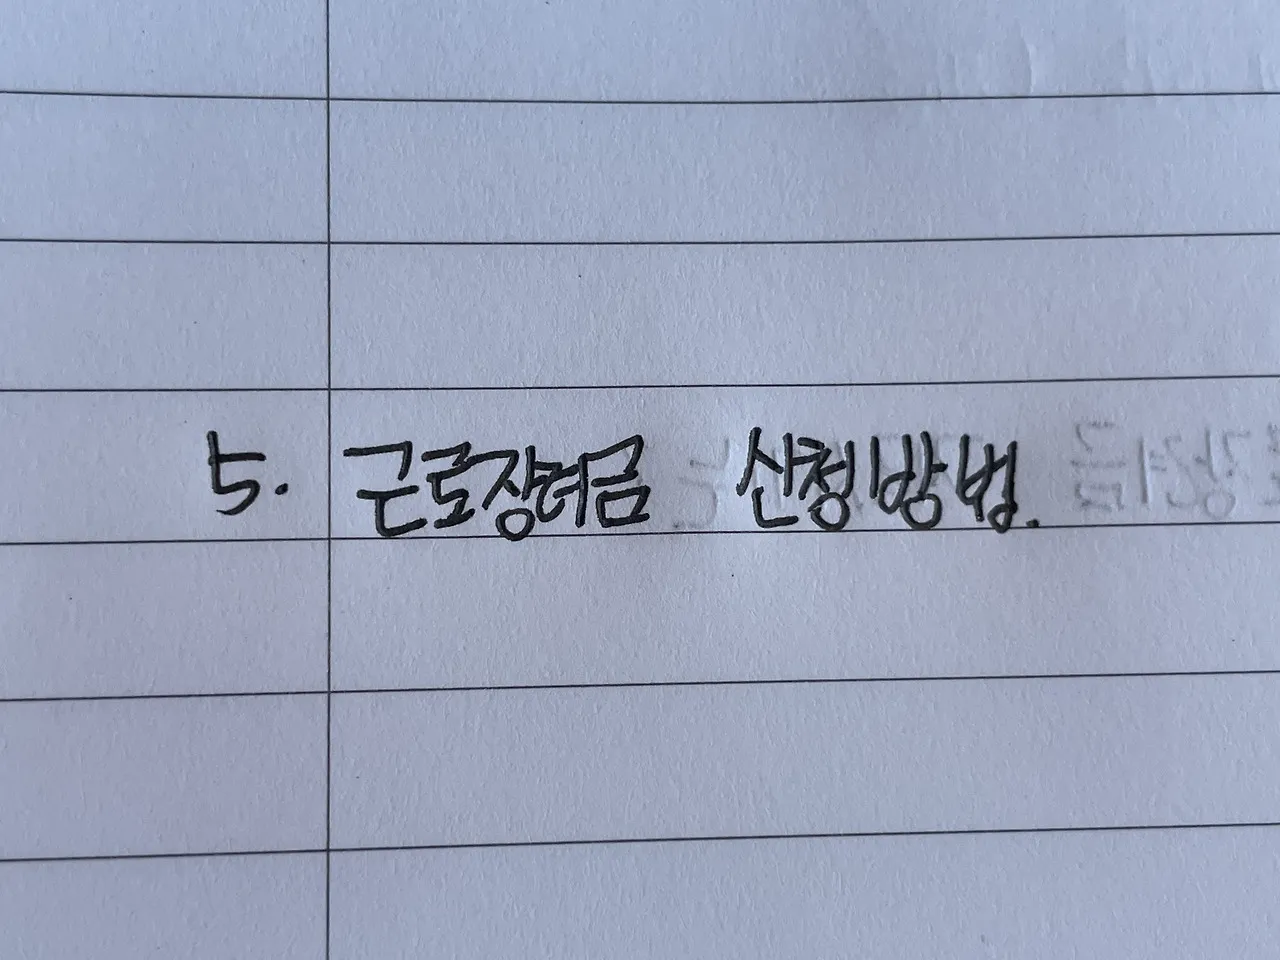 5. 근로장려금 신청방법.